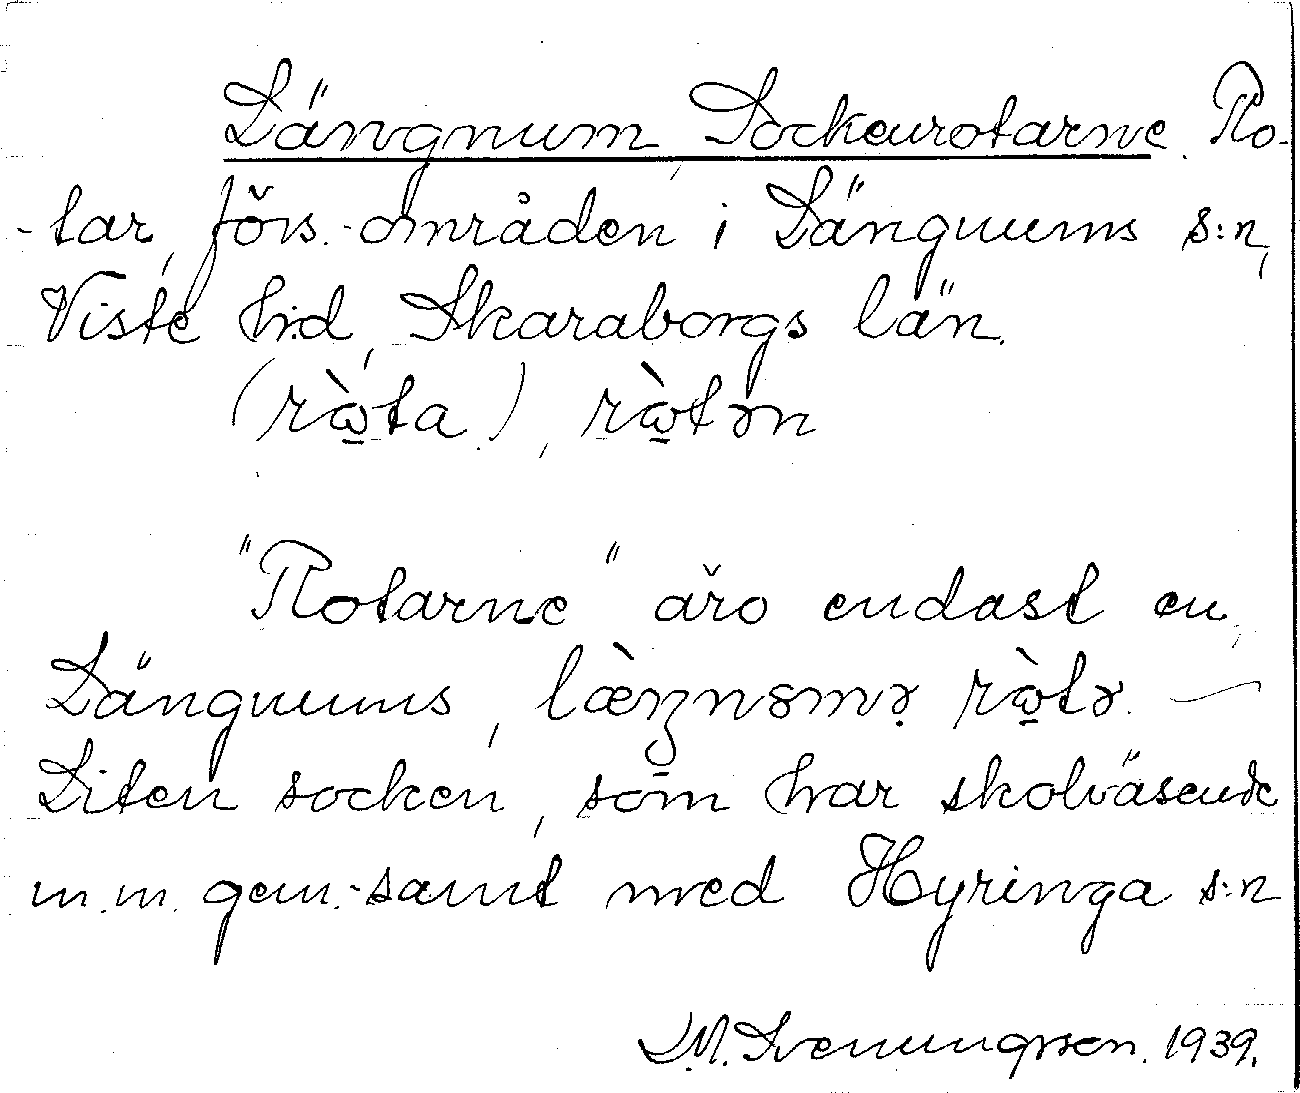 Längnum, Sockenrotarne. Ro-
-tar, förs.-områden i Längnums s:n,
Viste h:d, Skaraborgs län.
(rὼ̱ta), rὼ̱tər
"Rotarne" äro endast en,
Längnums, læ̀ŋnɞmə̣ rὼ̱tə. —
Liten socken, som har skolväsende
m.m. gem.-samt med Hyringa s:n
L.M. Svenungsson. 1939.